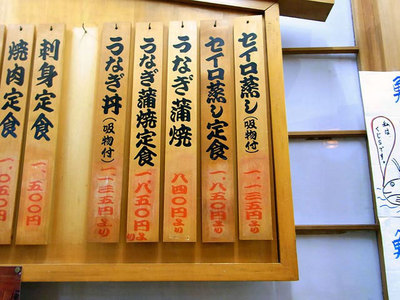 セイロ蒸し(吸物付)
一、一三五円より
セイロ蒸し定食
一、八五〇円より
うなぎ蒲焼
八四〇円より
うなぎ蒲焼定食
一、八五〇円より
うなぎ丼(吸物付)
一、一三五円より
刺身定食
一、五〇〇円
焼肉定食
一、〇五〇円